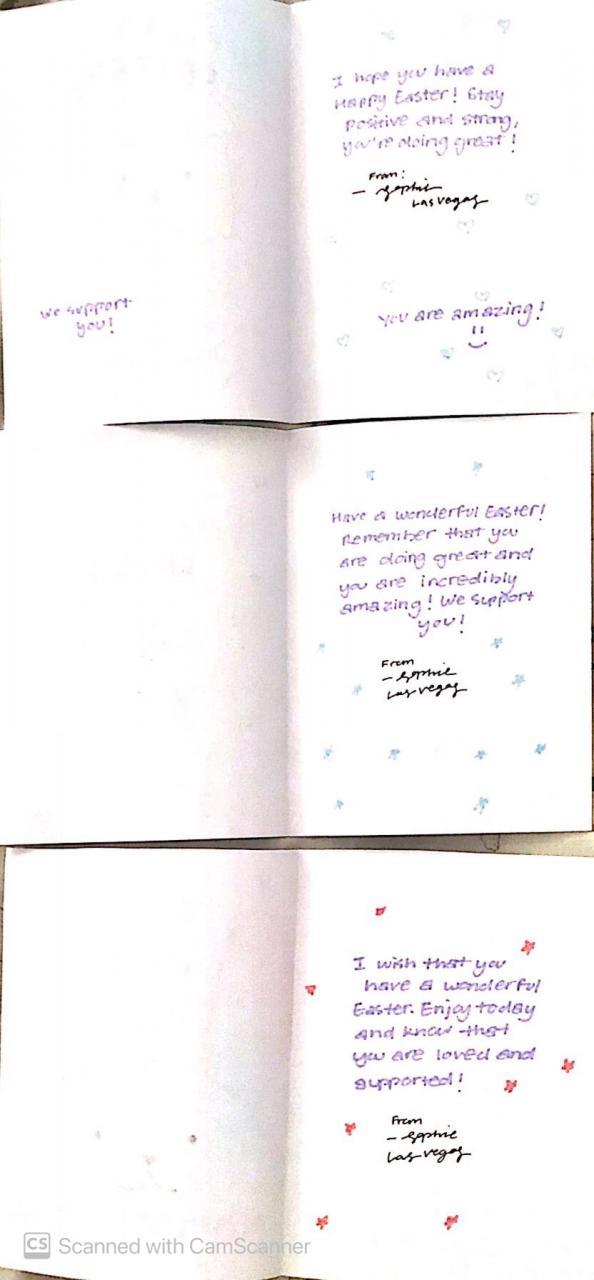 I hope you have a
Happy Easter! Stay
positive and strong,
you're doing great!
From:
- Sophie
Las Vegas
We support
you!
You are amazing!
Have a wonderful Easter!
Remember that you
are doing great and
you are incredibly
amazing! We support
you!
From
- Sophie
Las Vegas
I wish that you
have a wonderful
Easter. Enjoy today
and know that
you are loved and
supported!
From
- Sophie
Las Vegas
CS Scanned with CamScanner